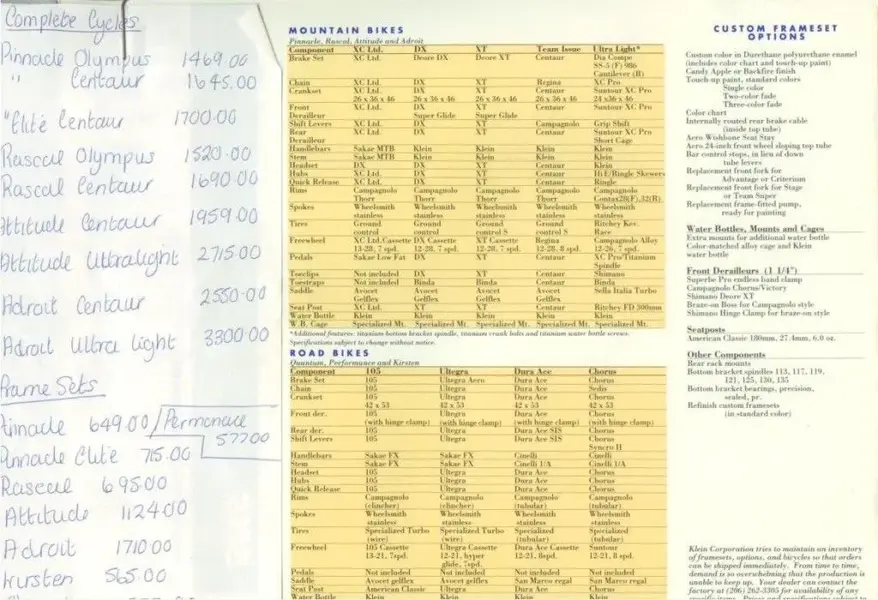 Complete Cycles
Pinnacle Olympus 1469.00
" Centaur 1645.00
"Elite Centaur 1700.00
Rascal Olympus 1520.00
Rascal Centaur 1690.00
Attitude Centaur 1959.00
Attitude Ultralight 2715.00
Adroit Centaur 2550.00
Adroit Ultra light 3300.00
Frame Sets
Pinnacle 649.00 / Performance
577.00
Pinnacle Elite 715.00
Rascal 695.00
Attitude 1124.00
Adroit 1710.00
Kirsten 565.00
MOUNTAIN BIKES
Pinnacle, Rascal, Attitude and Adroit
Component XC Ltd. DX XT Team Issue Ultra Light*
Brake Set XC Ltd. Deore DX Deore XT Centaur Dia Compe
SS-5 (F) 986
Cantilever (R)
Chain XC Ltd. DX XT Regina XC Pro
Crankset XC Ltd. DX XT Centaur Suntour XC Pro
26 x 36 x 46 26 x 36 x 46 26 x 36 x 46 26 x 36 x 46 24 x36 x 46
Front XC Ltd. DX XT Centaur Suntour XC Pro
Derailleur Super Glide Super Glide
Shift Levers XC Ltd. DX XT Campagnolo Grip Shift
Rear XC Ltd. DX XT Centaur Suntour XC Pro
Derailleur Short Cage
Handlebars Sakae MTB Klein Klein Klein Klein
Stem Sakae MTB Klein Klein Klein Klein
Headset DX DX XT Centaur Klein
Hubs XC Ltd. DX XT Centaur Hi E/Ringle Skewers
Quick Release XC Ltd. DX XT Centaur Ringle
Rims Campagnolo Campagnolo Campagnolo Campagnolo Campagnolo
Thorr Thorr Thorr Thorr Contax28(F),32(R)
Spokes Wheelsmith Wheelsmith Wheelsmith Wheelsmith Wheelsmith
stainless stainless stainless stainless stainless
Tires Ground Ground Ground Ground Ritchey Kev.
control control control S control S Race
Freewheel XC Ltd.Cassette DX Cassette XT Cassette Regina Campagnolo Alloy
13-28, 7 spd. 12-28, 7 spd. 12-28, 7 spd. 12-28, 8 spd. 12-26, 7 spd.
Pedals Sakae Low Fat DX XT Centaur XC Pro/Titanium
Spindle
Toeclips Not included DX XT Centaur Shimano
Toestraps Not included Binda Binda Centaur Binda
Saddle Avocet Avocet Avocet Avocet Sella Italia Turbo
Gelflex Gelflex Gelflex Gelflex
Seat Post XC Ltd. XT XT Centaur Ritchey FD 300mm
Water Bottle Klein Klein Klein Klein Klein
W.B. Cage Specialized Mt. Specialized Mt. Specialized Mt. Specialized Mt. Specialized Mt.
*Additional features: titanium bottom bracket spindle, titanium crank bolts and titanium water bottle screws.
Specifications subject to change without notice.
ROAD BIKES
Quantum, Performance and Kirsten
Component 105 Ultegra Dura Ace Chorus
Brake Set 105 Ultegra Aero Dura Ace Chorus
Chain 105 Ultegra Dura Ace Sedis
Crankset 105 Ultegra Dura Ace Chorus
42 x 53 42 x 53 42 x 53 42 x 53
Front der. 105 Ultegra Dura Ace Chorus
(with hinge clamp) (with hinge clamp) (with hinge clamp) (with hinge clamp)
Rear der. 105 Ultegra Dura Ace SIS Chorus
Shift Levers 105 Ultegra Dura Ace SIS Chorus
Syncro II
Handlebars Sakae FX Sakae FX Cinelli Cinelli
Stem Sakae FX Sakae FX Cinelli 1/A Cinelli 1/A
Headset 105 Ultegra Dura Ace Chorus
Hubs 105 Ultegra Dura Ace Chorus
Quick Release 105 Ultegra Dura Ace Chorus
Rims Campagnolo Campagnolo Campagnolo Campagnolo
(clincher) (clincher) (tubular) (tubular)
Spokes Wheelsmith Wheelsmith Wheelsmith Wheelsmith
stainless stainless stainless stainless
Tires Specialized Turbo Specialized Turbo Specialized Specialized
(wire) (wire) (tubular) (tubular)
Freewheel 105 Cassette Ultegra Cassette Dura Ace Cassette Suntour
13-21, 7spd. 12-21, hyper 12-21, 8spd. 12-21, 8 spd.
glide, 7spd.
Pedals Not included Not included Not included Not included
Saddle Avocet gelflex Avocet gelflex San Marco regal San Marco regal
Seat Post American Classic Ultegra Dura Ace Chorus
Water Bottle Klein Klein Klein Klein
CUSTOM FRAMESET
OPTIONS
Custom color in Durethane polyurethane enamel
(includes color chart and touch-up paint)
Candy Apple or Backfire finish
Touch-up paint, standard colors
Single color
Two-color fade
Three-color fade
Color chart
Internally routed rear brake cable
(inside top tube)
Aero Wishbone Seat Stay
Aero 24-inch front wheel sloping top tube
Bar control stops, in lieu of down
tube levers
Replacement front fork for
Advantage or Criterium
Replacement front fork for Stage
or Team Super
Replacement frame-fitted pump,
ready for painting
Water Bottles, Mounts and Cages
Extra mounts for additional water bottle
Color-matched alloy cage and Klein
water bottle
Front Derailleurs (1 1/4")
Superbe Pro endless band clamp
Campagnolo Chorus/Victory
Shimano Deore XT
Braze-on Boss for Campagnolo style
Shimano Hinge Clamp for braze-on style
Seatposts
American Classic 180mm, 27.4mm, 6.0 oz.
Other Components
Rear rack mounts
Bottom bracket spindles 113, 117, 119,
121, 125, 130, 135
Bottom bracket bearings, precision,
sealed, pr.
Refinish custom framesets
(in standard color)
Klein Corporation tries to maintain an inventory
of framesets, options, and bicycles so that orders
can be shipped immediately. From time to time,
demand is so overwhelming that the production is
unable to keep up. Your dealer can contact the
factory at (206) 262-3305 for availability of any